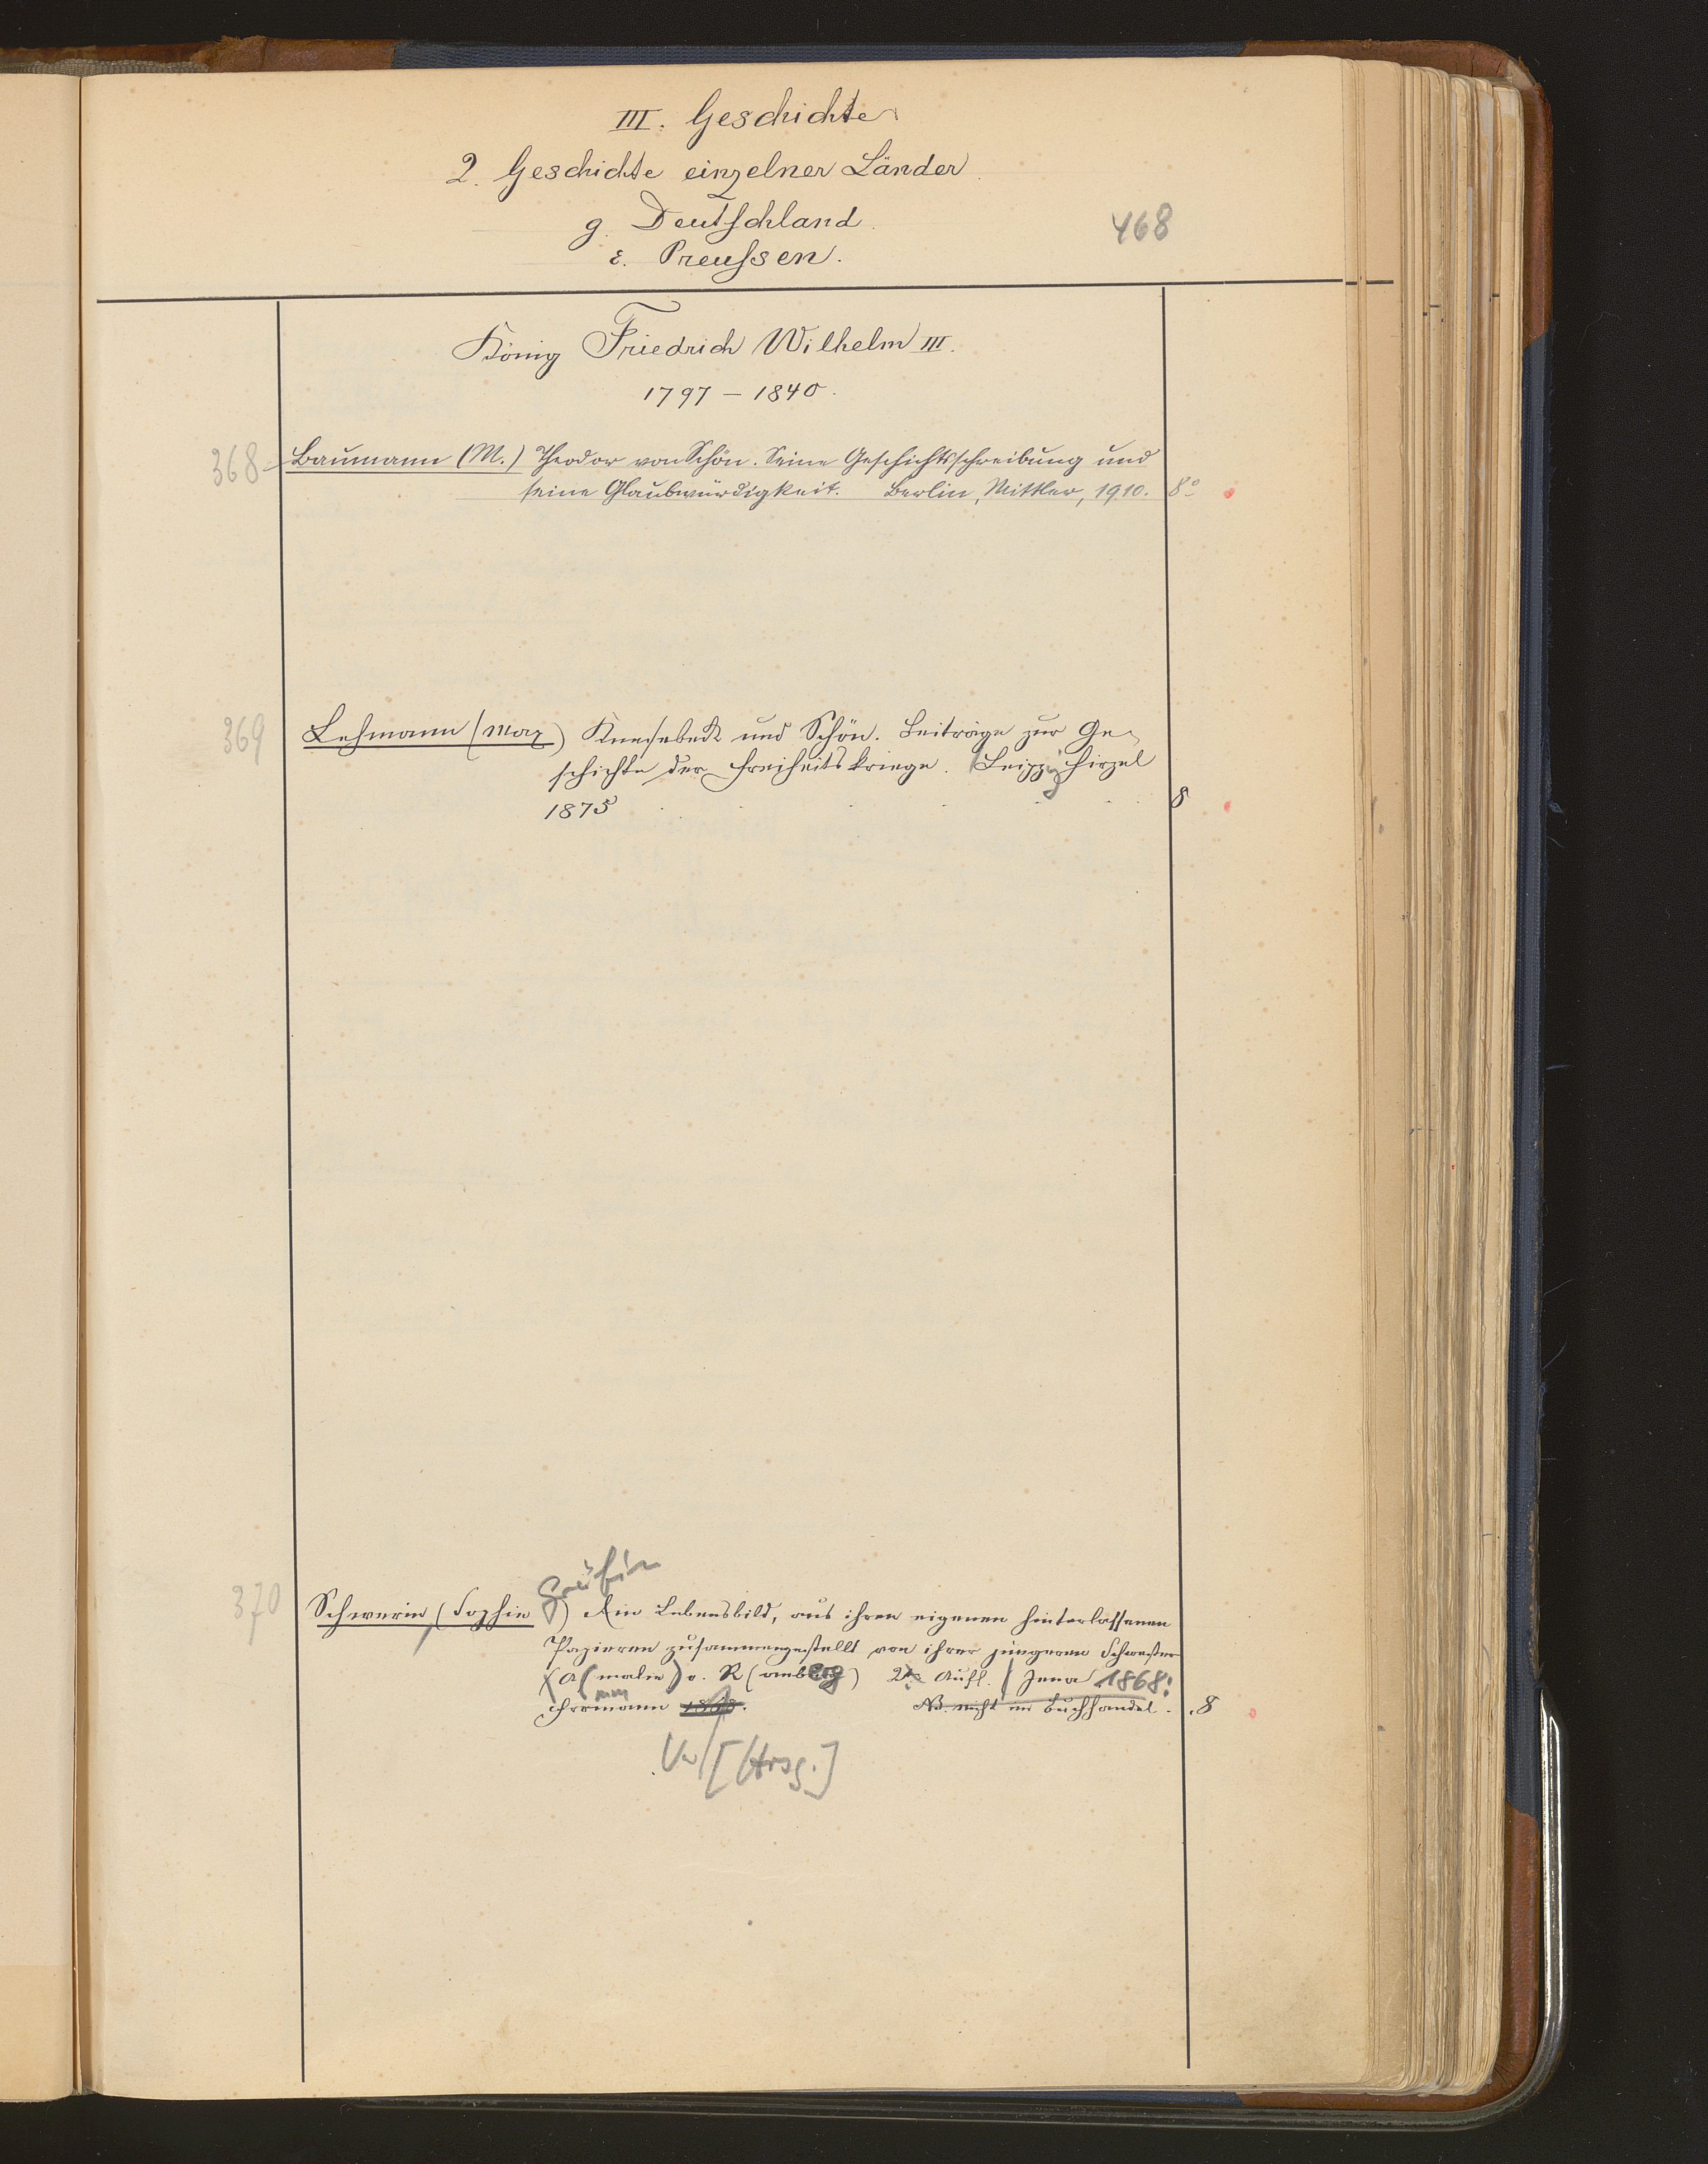 III. Geschichte
2. Geschichte einzelner Länder.
g. Deutschland.
468
ε. Preussen.
König Friedrich Wilhelm III.
1797 – 1840.
368 Baumann (M.) Theodor von Schön. Seine Geschichtsschreibung und
seine Glaubwürdigkeit. Berlin, Mittler, 1910. 8°
369 Lehmann (Max) Knesebeck und Schön. Beiträge zur Ge-
schichte der Freiheitskriege. Leipzig Hirzel
1875 8
Gräfin
370 Schwerin (Sophie) Ein Lebensbild, aus ihren eigenen hinterlassenen
Papieren zusammengestellt von ihrer jüngeren Schwester
(A(malie) v. R(omberg) 2te Aufl. Jena 1868.
Hermann 1868. NB. nicht im Buchhandel. 8
[Hrsg.]